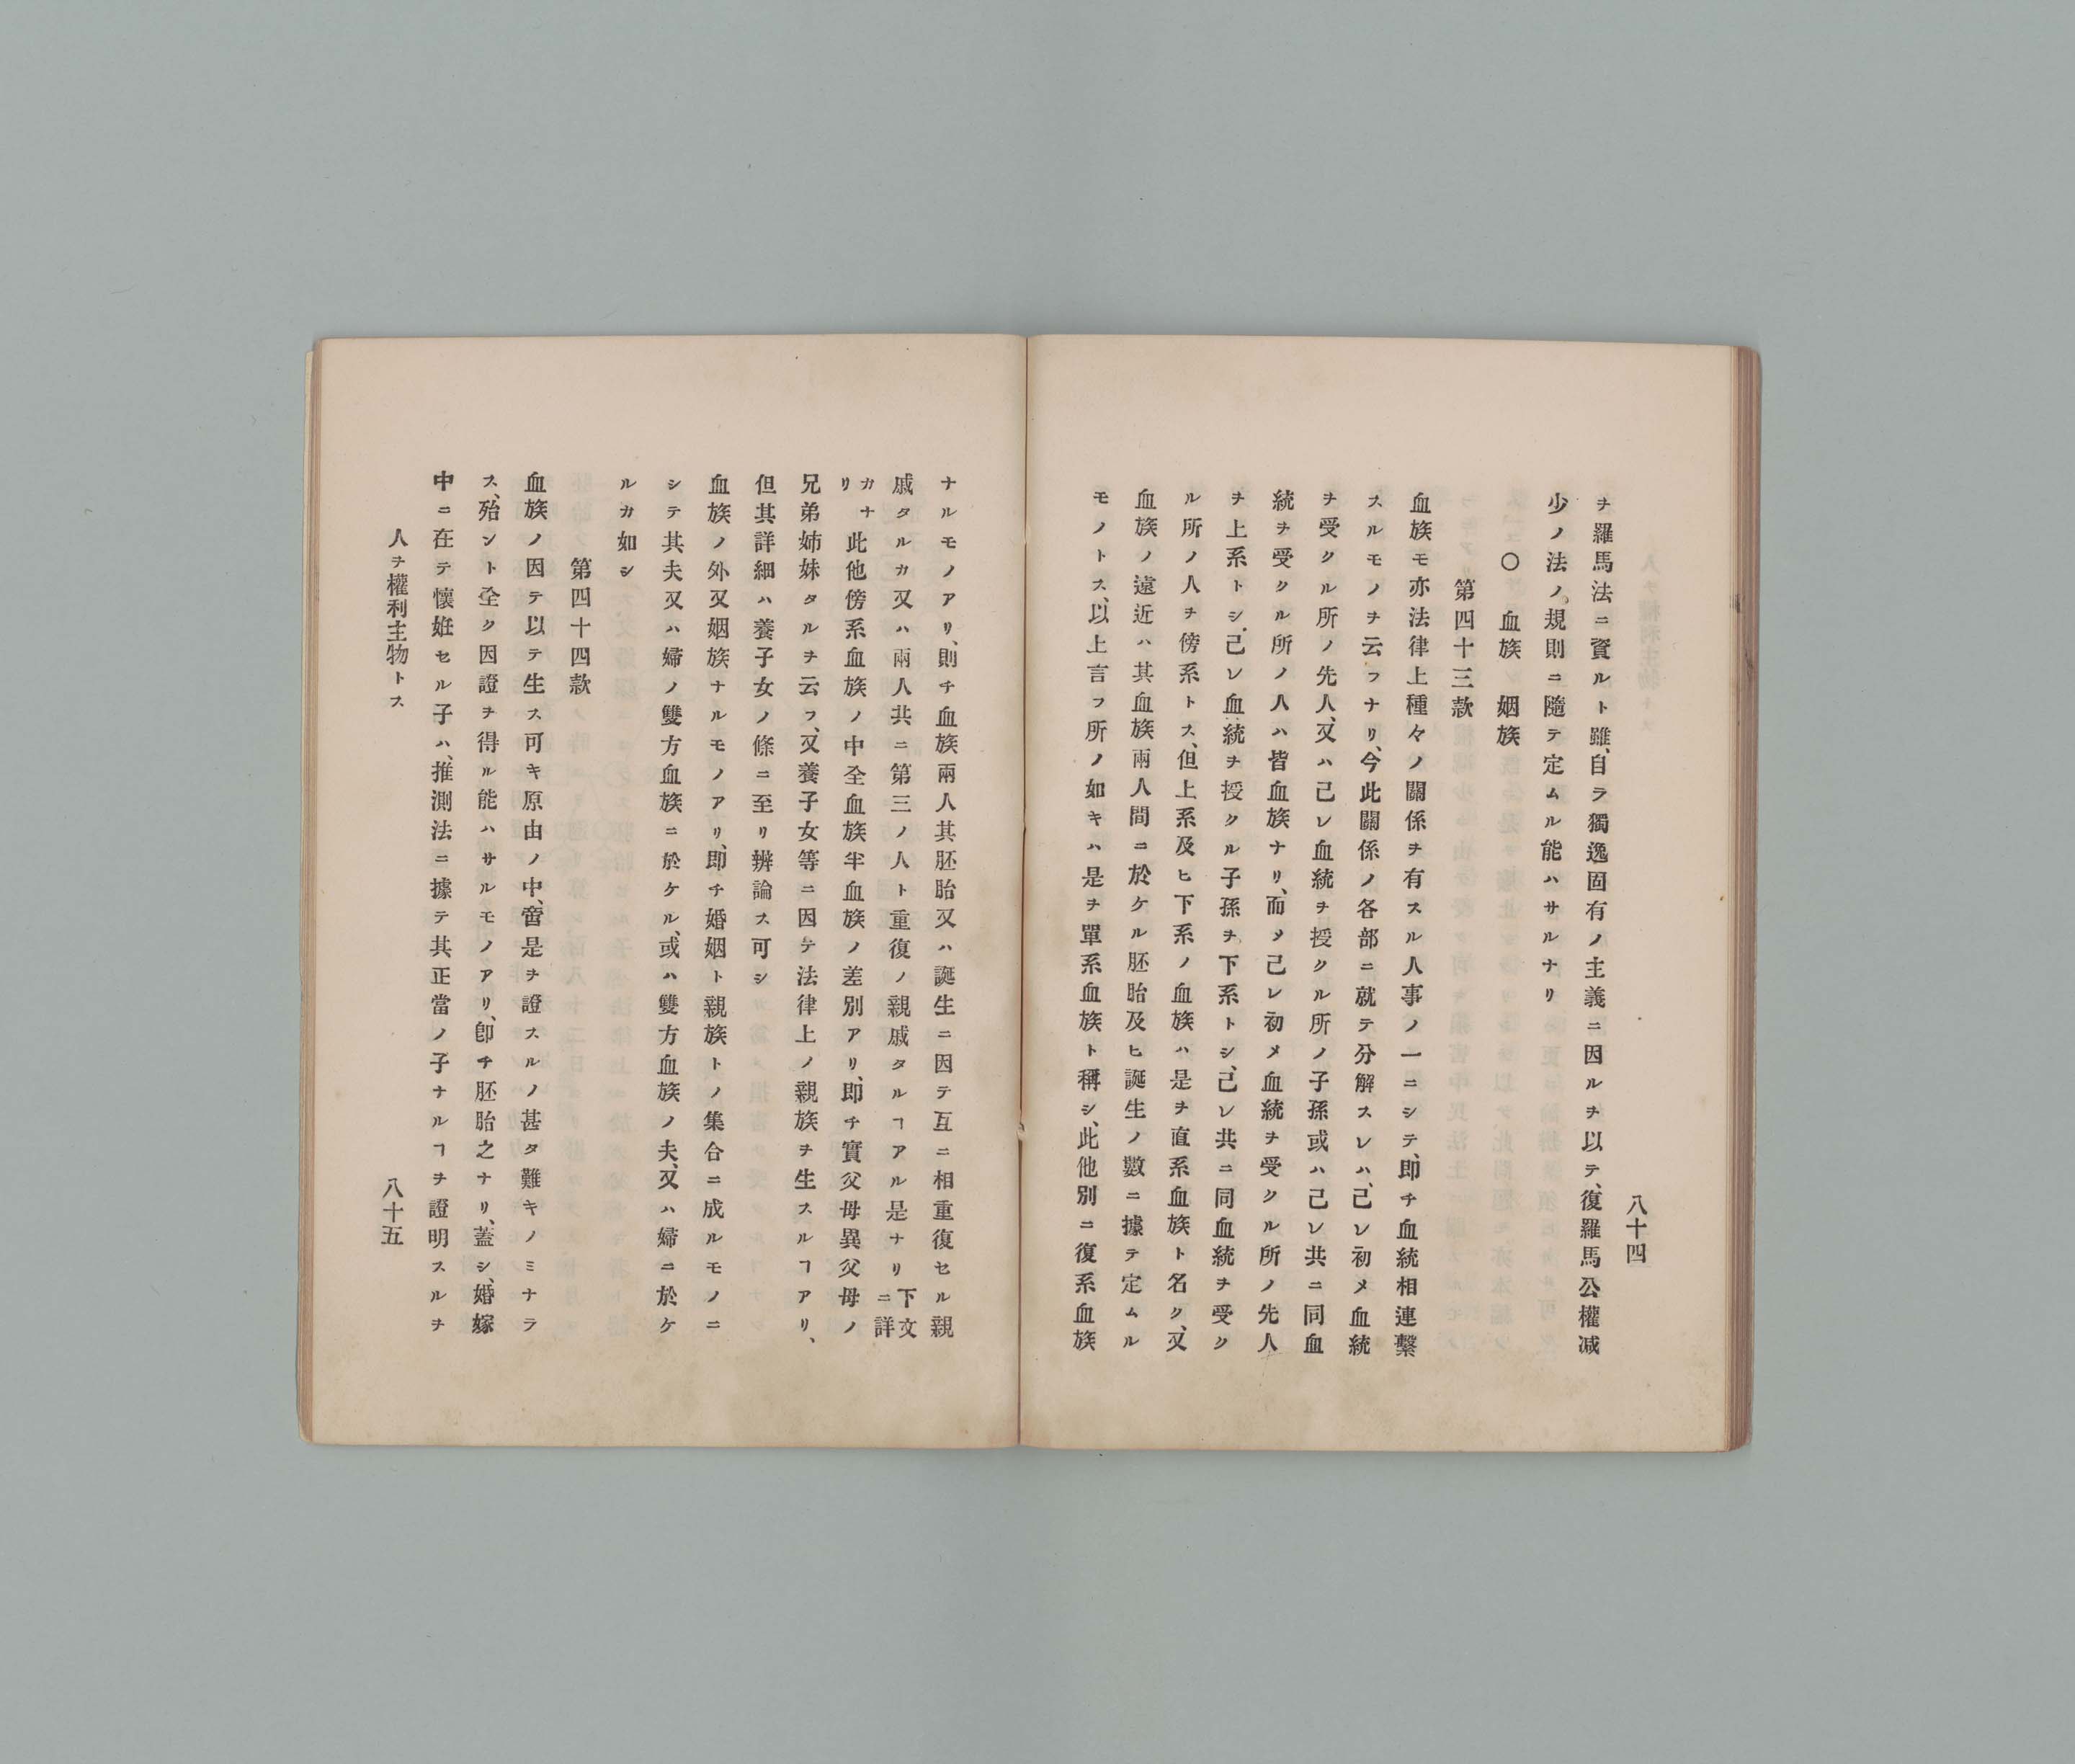 八十四
ヲ羅馬法ニ資ルト雖、自ラ獨逸固有ノ主義ニ因ルヲ以テ、復羅馬公權减
少ノ法ノ規則ニ隨テ定ムル能ハサルナリ
〇　血族　姻族
第四十三款
血族モ亦法律上種々ノ關係ヲ有スル人事ノ一ニシテ、即チ血統相連繫
スルモノヲ云フナリ、今此關係ノ各部ニ就テ分解スレハ、己レ初メ血統
ヲ受クル所ノ先人、又ハ己レ血統ヲ授クル所ノ子孫或ハ己レ共ニ同血
統ヲ受クル所ノ人ハ皆血族ナリ、而メ己レ初メ血統ヲ受クル所ノ先人
ヲ上系トシ、己レ血統ヲ授クル子孫ヲ下系トシ、己レ共ニ同血統ヲ受ク
ル所ノ人ヲ傍系トス、但上系及ヒ下系ノ血族ハ是ヲ直系血族ト名ク、又
血族ノ遠近ハ其血族兩人間ニ於ケル胚胎及ヒ誕生ノ數ニ據テ定ムル
モノトス、以上言フ所ノ如キハ是ヲ單系血族ト稱シ、此他別ニ復系血族
ナルモノアリ、則チ血族兩人其胚胎又ハ誕生ニ因テ互ニ相重復セル親
戚タルカ又ハ兩人共ニ第三ノ人ト重復ノ親戚タルヿアル是ナリ下文ニ詳
カナリ此他傍系血族ノ中全血族半血族ノ差別アリ、即チ實父母異父母ノ
兄弟姉妹タルヲ云フ、又養子女等ニ因テ法律上ノ親族ヲ生スルヿアリ、
但其詳細ハ養子女ノ條ニ至リ辨論ス可シ
血族ノ外又姻族ナルモノアリ、即チ婚姻ト親族トノ集合ニ成ルモノニ
シテ其夫又ハ婦ノ雙方血族ニ於ケル、或ハ雙方血族ノ夫、又ハ婦ニ於ケ
ルカ如シ
第四十四款
血族ノ因テ以テ生ス可キ原由ノ中、啻是ヲ證スルノ甚タ難キノミナラ
ス、殆ント全ク因證ヲ得ル能ハサルモノアリ、卽チ胚胎之ナリ、蓋シ、婚嫁
中ニ在テ懷姙セル子ハ、推測法ニ據テ其正當ノ子ナルヿヲ證明スルヲ
人ヲ權利主物トス
八十五